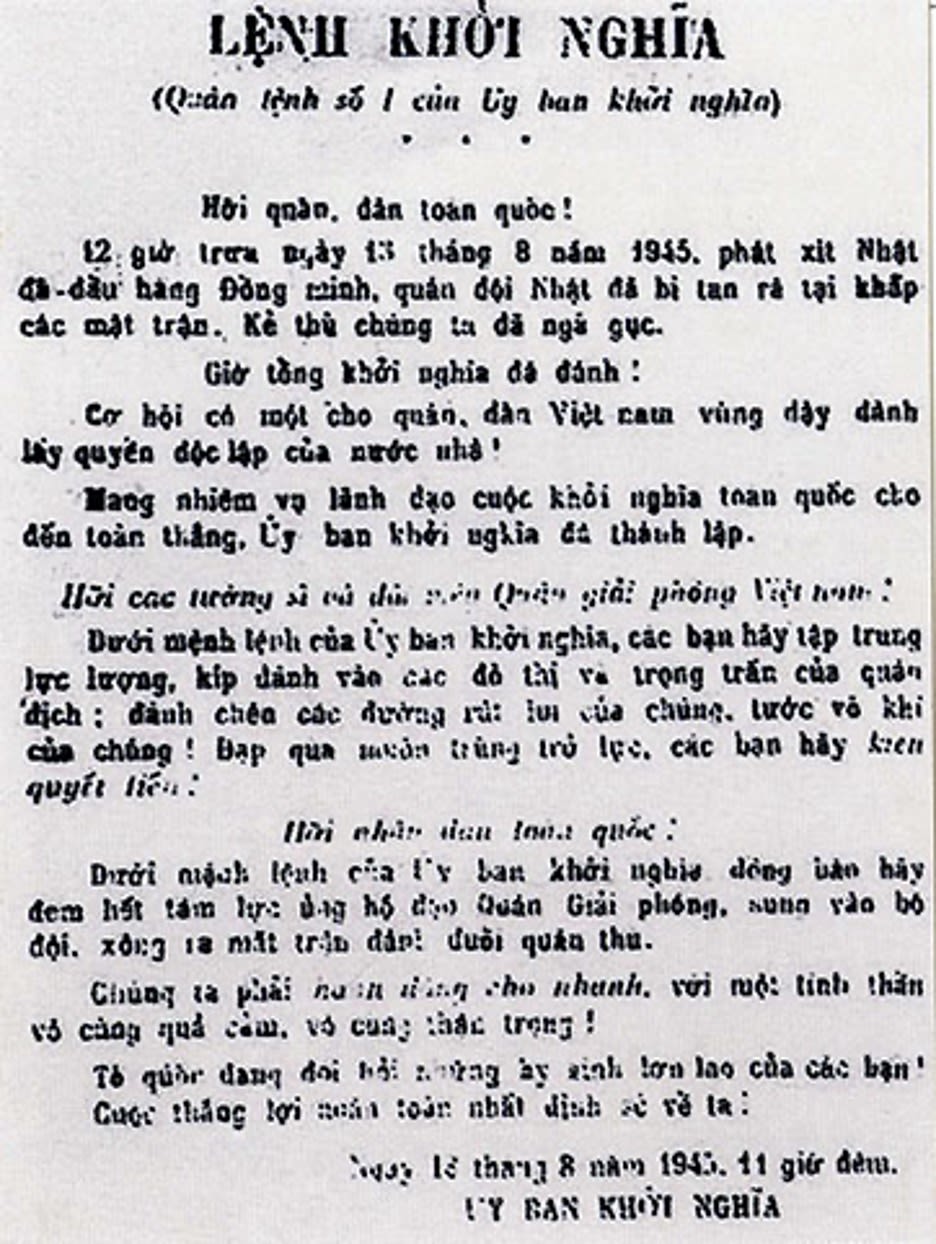 LỆNH KHỞI NGHĨA
(Quân lệnh số 1 của Ủy ban khởi nghĩa)
Hỡi quân, dân toàn quốc!
12 giờ trưa ngày 13 tháng 8 năm 1945, phát xít Nhật
đã đầu hàng Đồng minh, quân đội Nhật đã bị tan rã tại khắp
các mặt trận. Kẻ thù chúng ta đã ngã gục.
Giờ tổng khởi nghĩa đã đánh!
Cơ hội có một cho quân, dân Việt nam vùng dậy dành
lấy quyền độc lập của nước nhà!
Mang nhiệm vụ lãnh đạo cuộc khởi nghĩa toàn quốc cho
đến toàn thắng, Ủy ban khởi nghĩa đã thành lập.
Hỡi các tướng sĩ và đội viên Quân giải phóng Việt nam!
Dưới mệnh lệnh của Ủy ban khởi nghĩa, các bạn hãy tập trung
lực lượng, kíp đánh vào các đô thị và trọng trấn của quân
địch; đánh chẹn các đường rút lui của chúng, tước võ khí
của chúng! Đạp qua muôn trùng trở lực, các bạn hãy kiên
quyết tiến!
Hỡi nhân dân toàn quốc!
Dưới mệnh lệnh của Ủy ban khởi nghĩa đồng bào hãy
đem hết tâm lực ủng hộ đạo Quân Giải phóng, sung vào bộ
đội, xông ra mặt trận đánh đuổi quân thù.
Chúng ta phải hành động cho nhanh, với một tinh thần
vô cùng quả cảm, vô cùng thận trọng!
Tổ quốc đang đòi hỏi những hy sinh lớn lao của các bạn!
Cuộc thắng lợi hoàn toàn nhất định sẽ về ta!
Ngày 13 tháng 8 năm 1945, 11 giờ đêm.
ỦY BAN KHỞI NGHĨA